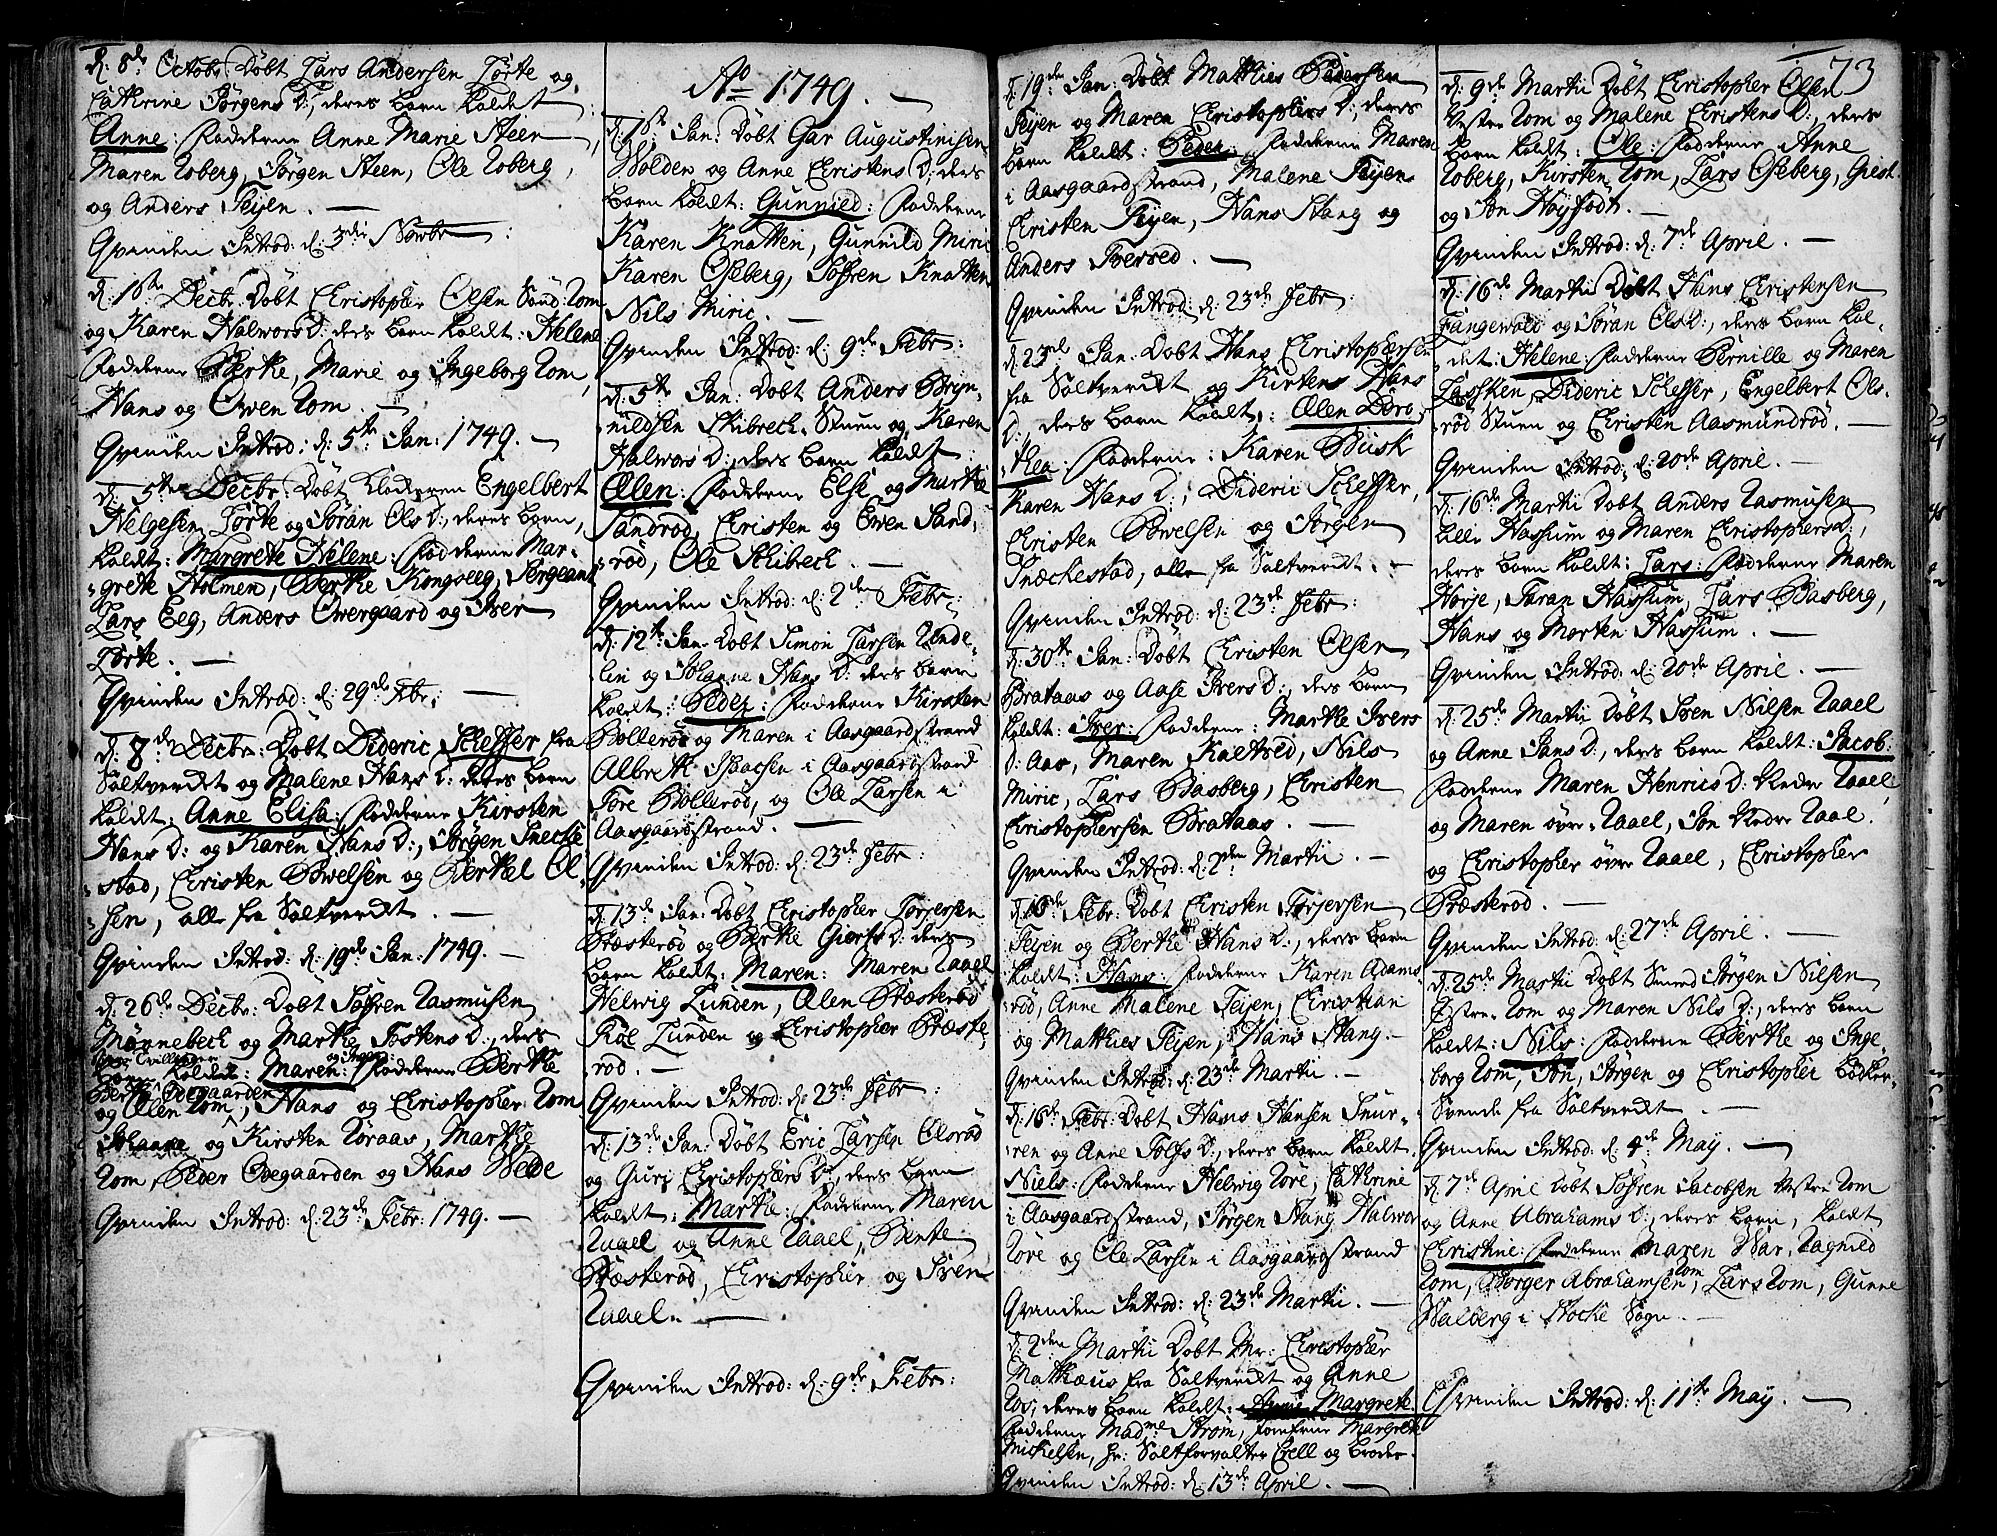 d: 8de Octobr: Döbt Lars Andersen Törte og
Cathrine Jörgens D:, deres barn kaldet
Anne: Fadderne Anne Marie Steen
Maren Roberg, Jörgen Steen, Ole Roberg,
og Anders Teyen. —
Qvinden Introd: d: Novbr:
d: 1ste Decbr: Döbt Christopher Olsen Sönd: Rom
og Karen Halwors D: ders barn kaldt: Helene
Fadderne Berthe, Marie og Ingeborg Rom,
Hans og Ewen Rom. —
Qvinden Introd: d: 5te Jan: 1749. —
d: 5te Decbr: Döbt Engelbert
Helgesen Törte og Söran Ols D:, deres barn,
kaldt: Margrete Helene: Fadderne Mar-
grete Holmen, Berthe Kongseeg, Sergeant
Lars Eeg, Anders Qwergaard og Iver
Törte. —
Qvinden Introd: d: 29de Febr: —
d: 8de Decbr: Döbt Dideric Scheffer fra
Saltverckt og Malene Hans D: deres barn
kaldt: Anne Elisa: Fadderne Kirsten
Hans D: og Karen Hans D:, Jörgen Snecke
stad, Christen Powelsen og Berthel Ol-
sen, alle fra Saltverckt. —
Qvinden Introd: d: 19de Jan: 1749. —
d: 26de Decbr: Döbt Söfren Rasmusen
Mönnebech og Marthe Tostens D:, ders
Tvillinger og Inger
barn kaldet: Maren: Fadderne Berthe
Berthe Oegaarden
og Ælen Rom, Hans og Christopher Rom
Johanne og Kirsten Roraas, Marthe
Rom, Peder Oegaarden og Hans Welde
Qvinden Introd: d: 23de Febr: 1749. —
Ao 1749. —
d: 1st Jan: Döbt Gar Augustinisen
Wolden og Anne Christens D: ders
barn kaldt: Gunnild: Fadderne
Karen Knatten, Gunnild Miric
Karen Oseberg, Söfren Knatten
Nils Miric. —
Qvinden Introd: d: 9de Febr:
d: 5te Jan: Döbt Anders Bryn-
nildsen Skibrech Stuen og Karen
Halwors D:, ders barn kaldt:
Ælen: Fadderne Else og Marthe
Sandröd, Christen og Ewen Sand-
röd, Ole Schibech. —
Qvinden Introd: d: 2den Febr:
d: 12te Jan: Döbt Simon Larsen Unde-
lin og Johanne Hans D: ders barn
kaldt: Peder: Fadderne Kirsten
Bolleröd og Maren i Aasgaardstrand
Albrett Isaachsen i Aasgaardstrand
Tore Bolleröd, og Ole Larsen i
Aasgaardstrand. —
Qvinden Introd: d: 23de Febr:
d: 13de Jan: Döbt Christopher Torjersen
Præsteröd og Berthe Gierts D: ders
barn kaldt: Maren: Maren Raael
Helwig Lunden, Ælen Præsteröd
Roe Lunden og Christopher Præste
röd. —
Qvinden Introd: d: 23de Febr:
d: 13de Jan: Döbt Eric Larsen Olsröd
og Guri Christophers D:, ders barn
kaldt: Marthe: Fadderne Maren
Raael og Anne Raael, Bente
Præsteröd, Christopher og Sven
Raael. —
Qvinden Introd: d: 9de Febr:
73
d: 19de Jan: Döbt Matthies Pedersen
Teyen og Maren Christophers D:, ders
barn kaldt: Peder: Fadderne Maren
i Aasgaardstrand, Malene Teyen
Christen Teyen, Hans Stang og
Anders Tversed. —
Qvinden Introd: d: 23de Febr:
d: 23de Jan: Döbt Hans Christophersen
fra Saltverckt og Kirsten Hans
D:, ders barn kaldt: Ælen Doro-
thea: Fadderne: Karen Busk
Karen Hans D:, Dideric Scheffer,
Christen Powelsen og Jörgen
Sneckestad, alle fra Saltverckt. —
Qvinden Introd: d: 23de Febr:
d: 30te Jan: Döbt Christen Olsen
Brataas og Aase Ivers D:, ders barn
kaldt: Iver: Fadderne: Marthe Ivers
D: Aas, Maren Kaltred, Nils
Miric, Lars Basberg, Christen
Christophersen Brataas. —
Qvinden Introd: d: 2den Martii. —
d: 16de Febr: Döbt Christen Torjersen
Teyen og Berthe Hans D:, ders barn
kaldt: Hans: Fadderne Karen Adams
röd, Anne Malene Teyen, Christian
og Matthies Teyen, Hans Stang. —
Qvinden Introd: d: 23de Martii. —
d: 16de Febr: Döbt Hans Hansen Snur-
ren og Anne Tolfs D:, deres barn kaldt
Niels: Fadderne Helwig Röre, Cathrine
i Aasgaardstrand, Jörgen Stang Halwor
Röre og Ole Larsen i Aasgaardstrand
Qvinden Introd: d: 23de Martii. —
d: 2den Martii Döbt Mr: Christopher
Mathæus fra Saltverckt og Anne
Ros, deres barn kaldt: Anne Margrete
Fadderne Madme Ström, Jomfrue Margrete
Michelsen, Hr: Saltforvalter Crell og broder
Qvinden Introd: d: 13de April. —
d: 9de Martii Döbt Christopher Olsen
Vestre Rom og Malene Christens D:, ders
barn kaldt: Ole: Fadderne Anne
Roberg, Kirsten Rom, Lars Oseberg, Giest
og Jon Höyfödt. —
Qvinden Introd: d: 7de April. —
d: 16de Martii Döbt Hans Christensen
Fangewald og Söran Ols D:, ders barn kal-
det: Helene: Fadderne Pernille og Maren
Laschken, Dideric Scheffer, Engelbert Ols-
röd Stuen og Christen Aasmundröd. —
Qvinden Introd: d: 20de April. —
d: 16de Martii Döbt Anders Rasmusen
Lille Hassum og Maren Christophers D:,
deres barn kaldt: Lars: Fadderne Maren
Borje, Söran Hassum, Lars Basberg,
Hans og Morten Hassum. —
Qvinden Introd: d: 20de April. —
d: 25de Martii Döbt Sven Nilsen Raael
og Anne Jans D:, ders barn kaldt: Jacob:
Fadderne Maren Henrics D: Nedre Raael
og Maren övre Raael, Jon Nedre Raael.
og Christopher övre Raael, Christopher
Præsteröd. —
Qvinden Introd: d: 27de April. —
d: 25de Martii Döbt Smed Jörgen Nilsen
Östre Rom og Maren Nils D:, ders barn
kaldt: Nils: Fadderne Berthe og Inge-
borg Rom, Jon, Jörgen og Christopher Bödker-
Svende fra Saltverckt. —
Qvinden Introd: d: 4de May. —
d: 7de April Döbt Söfren Jacobsen Vestre Rom
og Anne Abrahams D:, deres barn, kaldt
Christine: Fadderne Maren War, Ragnild
Rom, Börger Abrahamsen Rom, Lars Rom, Gunne
Walberg i Stocke Sogn. —
Qvinden Introd: d: 11te May. —